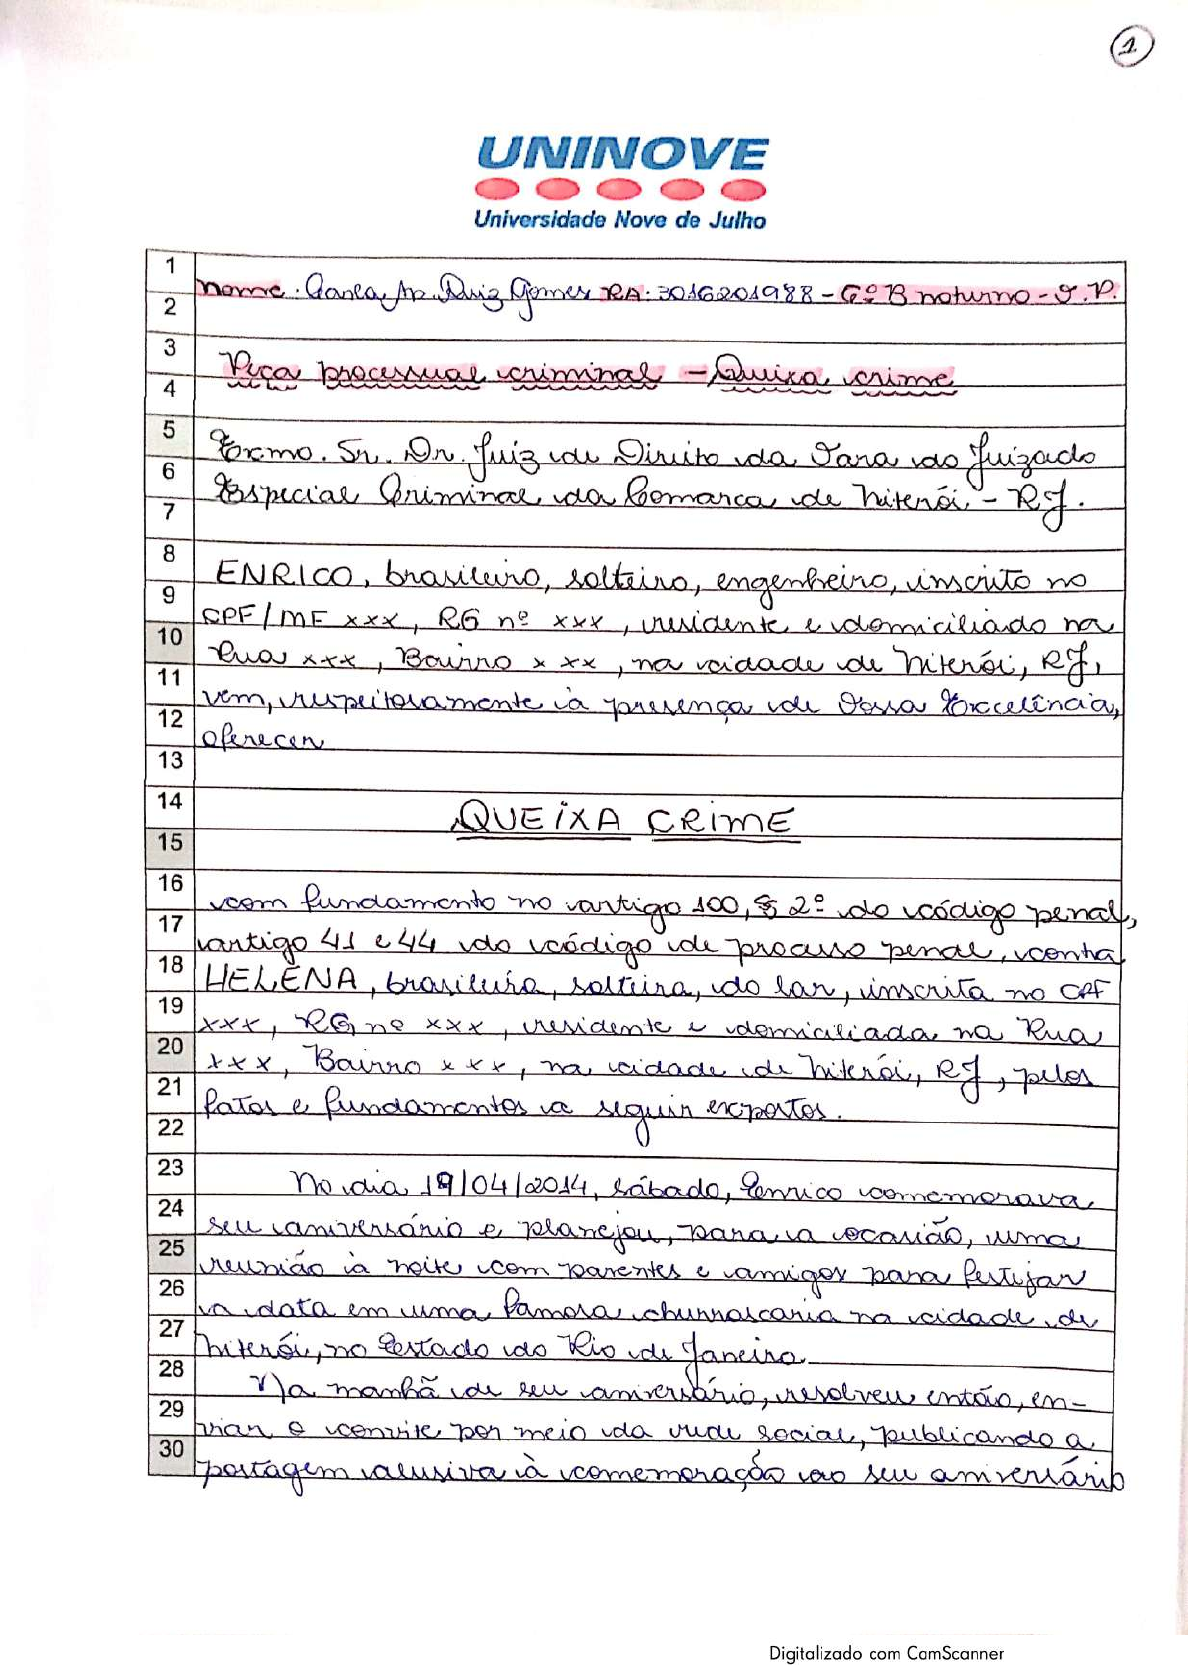 1
UNINOVE
Universidade Nove de Julho
Nome: Ap. Ruiz Gomes RA: 3016201988 - 6º B noturno -
Peça processual criminal - Queixa crime
Exmo. Sr. Dr. Juiz de Direito da Vara do Juizado
Especial Criminal da Comarca de Niterói - RJ.
ENRICO, brasileiro, solteiro, engenheiro, inscrito no
CPF/MF xxx, RG nº xxx, residente e domiciliado na
Rua xxx, Bairro xxx, na cidade de Niterói, RJ,
vem, respeitosamente à presença de Vossa Excelência,
oferecer
QUEIXA CRIME
com fundamento no artigo 100, § 2º do código penal,
artigo 41 e 44 do código de processo penal, contra
HELENA, brasileira, solteira, do lar, inscrita no CPF
xxx, RG nº xxx, residente e domiciliada na Rua
xxx, Bairro xxx, na cidade de Niterói, RJ, pelos
fatos e fundamentos a seguir expostos.
No dia 19/04/2014, sábado, Enrico comemorava
seu aniversário e planejou, para a ocasião, uma
reunião à noite com parentes e amigos para festejar
a data em uma famosa churrascaria na cidade de
Niterói, no Estado do Rio de Janeiro.
Na manhã de seu aniversário, resolveu então, en-
viar o convite por meio da rede social, publicando a
postagem alusiva à comemoração ao seu aniversário
1
2
3
4
5
6
7
8
9
10
11
12
13
14
15
16
17
18
19
20
21
22
23
24
25
26
27
28
29
30
Digitalizado com CamScanner